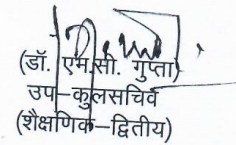 (डॉ. एम.सी. गुप्ता)
उप–कुलसचिव
(शैक्षणिक–द्वितीय)